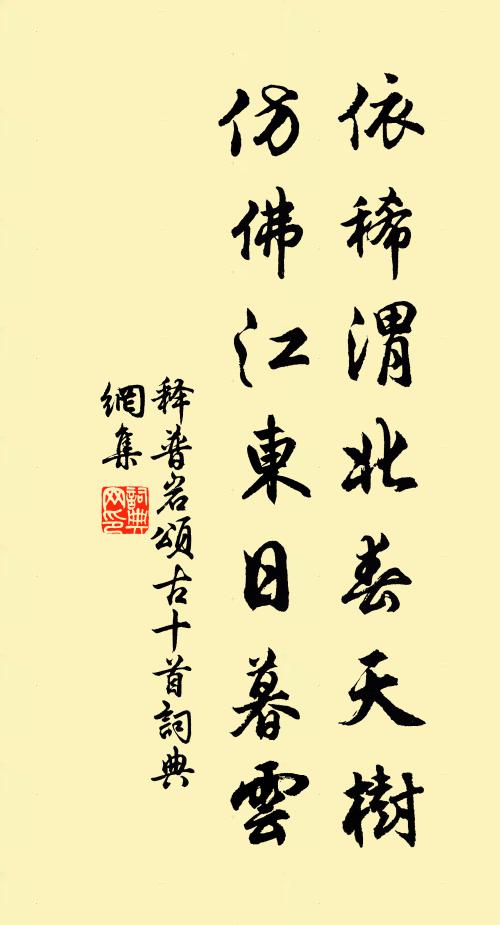 依稀渭北春天樹
仿佛江東日暮雲
释普岩頌古十首詞典
網集
詞典
网印